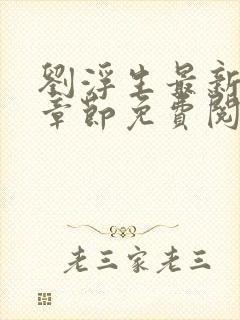 劉浮生最新
章節免費閱
老三家老三